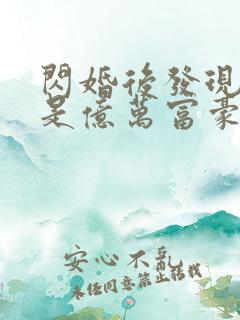 閃婚後發現
是億萬富豪
安心不亂
未經同意禁止轉載